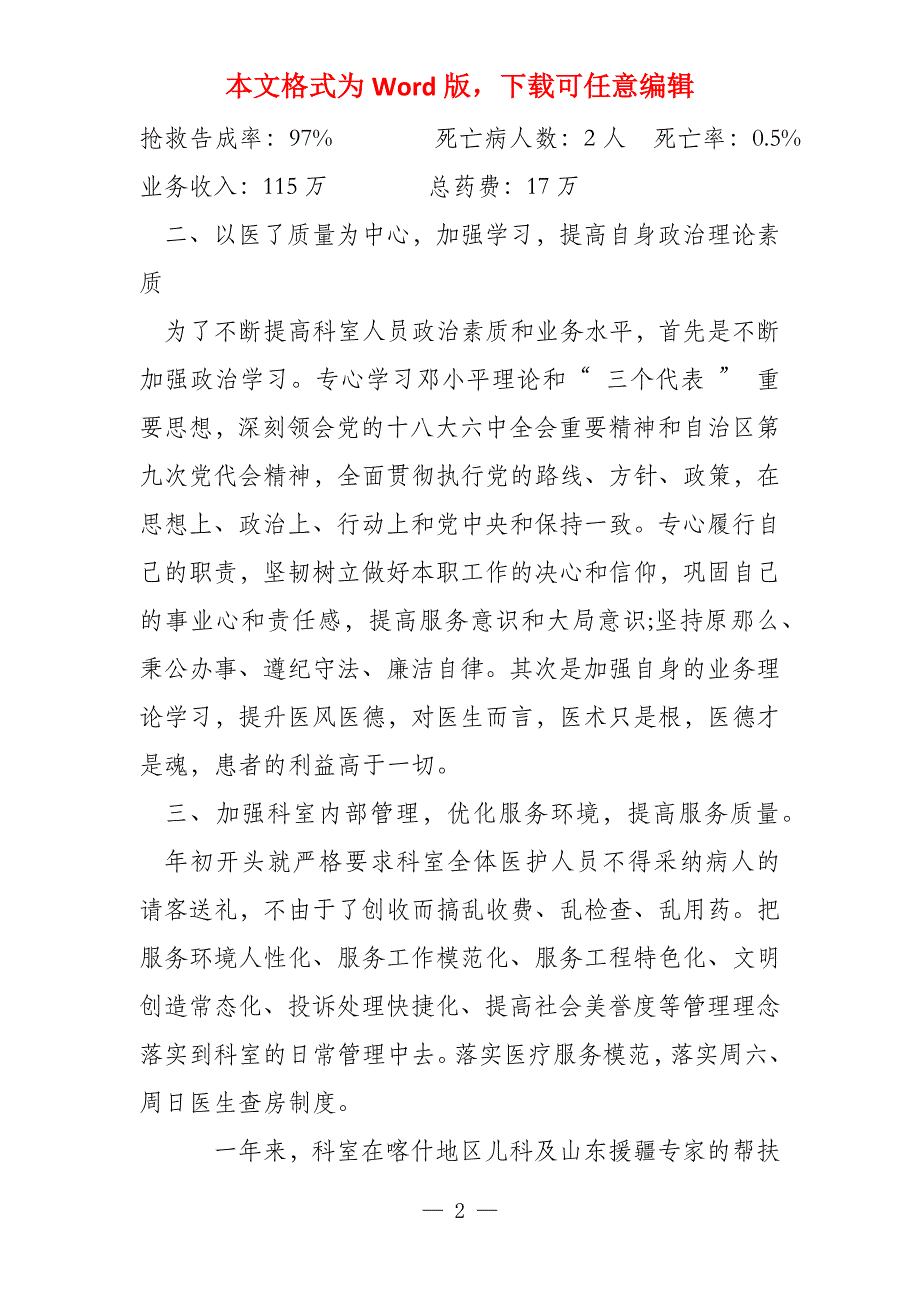 本文格式为 Word 版，下载可任意编辑
抢救告成率：97% 死亡病人数：2 人 死亡率：0.5%
业务收入：115 万 总药费：17 万
二、以医了质量为中心，加强学习，提高自身政治理论素
质
为了不断提高科室人员政治素质和业务水平，首先是不断
加强政治学习。专心学习邓小平理论和“ 三个代表 ” 重
要思想，深刻领会党的十八大六中全会重要精神和自治区第
九次党代会精神，全面贯彻执行党的路线、方针、政策，在
思想上、政治上、行动上和党中央和保持一致。专心履行自
己的职责，坚韧树立做好本职工作的决心和信仰，巩固自己
的事业心和责任感，提高服务意识和大局意识;坚持原那么、
秉公办事、遵纪守法、廉洁自律。其次是加强自身的业务理
论学习，提升医风医德，对医生而言，医术只是根，医德才
是魂，患者的利益高于一切。
三、加强科室内部管理，优化服务环境，提高服务质量。
年初开头就严格要求科室全体医护人员不得采纳病人的
请客送礼，不由于了创收而搞乱收费、乱检查、乱用药。把
服务环境人性化、服务工作模范化、服务工程特色化、文明
创造常态化、投诉处理快捷化、提高社会美誉度等管理理念
落实到科室的日常管理中去。落实医疗服务模范，落实周六、
周日医生查房制度。
一年来，科室在喀什地区儿科及山东援疆专家的帮扶
— 2 —